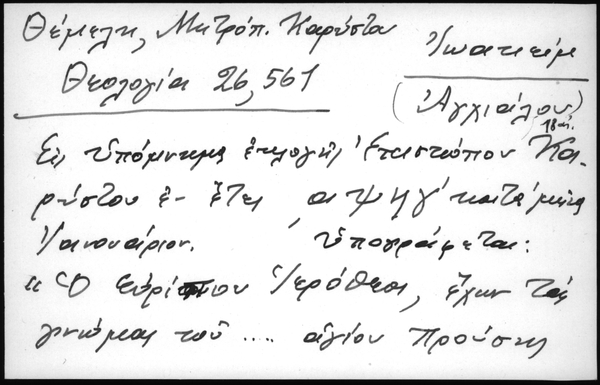 Θέμελη, Μητρόπ. Καρύστου
Ἰωακείμ
Θεολογία 26, 561
(Ἀγχιάλου)
18 αἰ.
Εἰς ὑπόμνημα ἐκλογῆς Ἐπισκόπου Κα-
ρύστου ἐν ἔτει, αψηγ΄ κατὰ μῆνα
Ἰανουάριον. ὑπογράφεται:
"Ὁ Εὐρίπου Ἱερόθεος, ἔχων τὰς
γνώμας τοῦ .... ἁγίου Προύσης